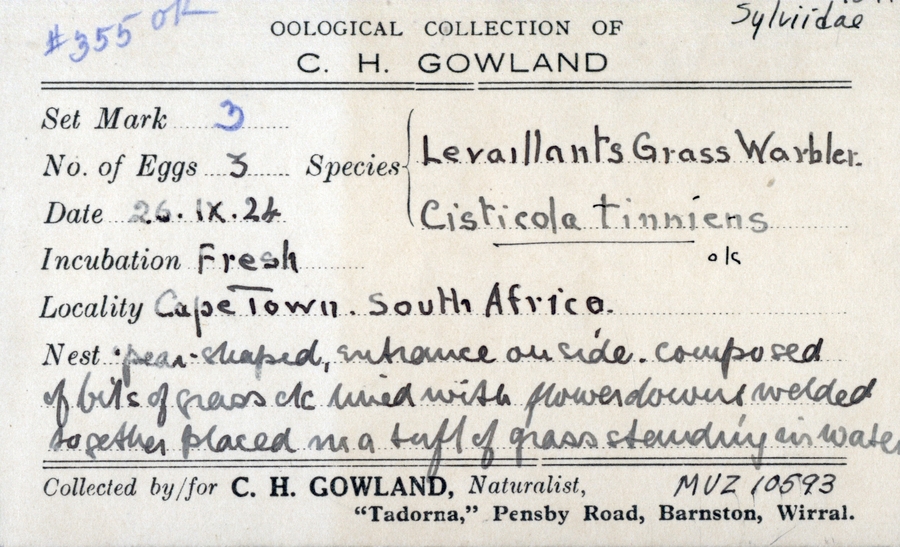 #355 ok
Sylviidae
OOLOGICAL COLLECTION OF
C. H. GOWLAND
Set Mark 3
No. of Eggs 3 Species Levaillants Grass Warbler.
Date 26.IX.24 Cisticola tinniens
ok
Incubation Fresh
Locality Cape Town. South Africa.
Nest pear-shaped, entrance on side. composed
of bits of grass etc lined with flowerdowns welded
together placed in a tuft of grass standing in water
Collected by/for C. H. GOWLAND, Naturalist, MVZ 10593
"Tadorna," Pensby Road, Barnston, Wirral.